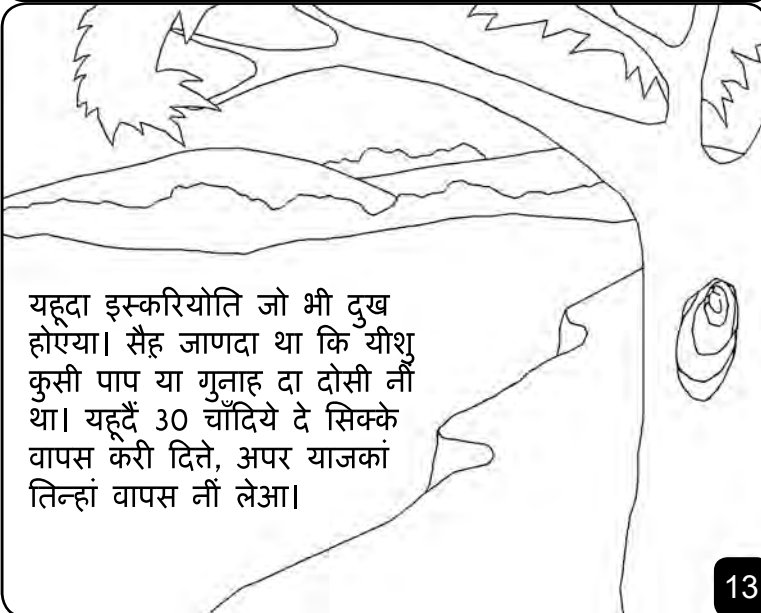 यहूदा इस्करियोति जो भी दुख
होएया। सैह़ जाणदा था कि यीशु
कुसी पाप या गुनाह दा दोसी नीं
था। यहूदैं 30 चाँदिये दे सिक्के
वापस करी दित्ते, अपर याजकां
तिन्हां वापस नीं लेआ।
13